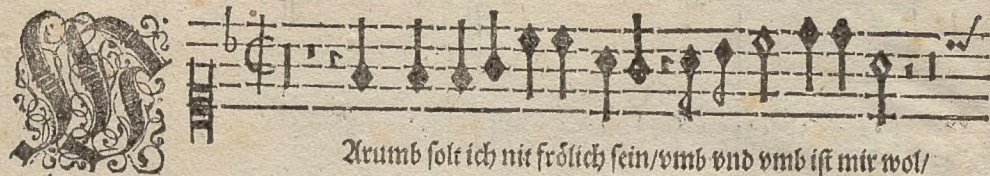 WArumb solt ich nit frölich sein/vmb vnd vmb ist mir wol/